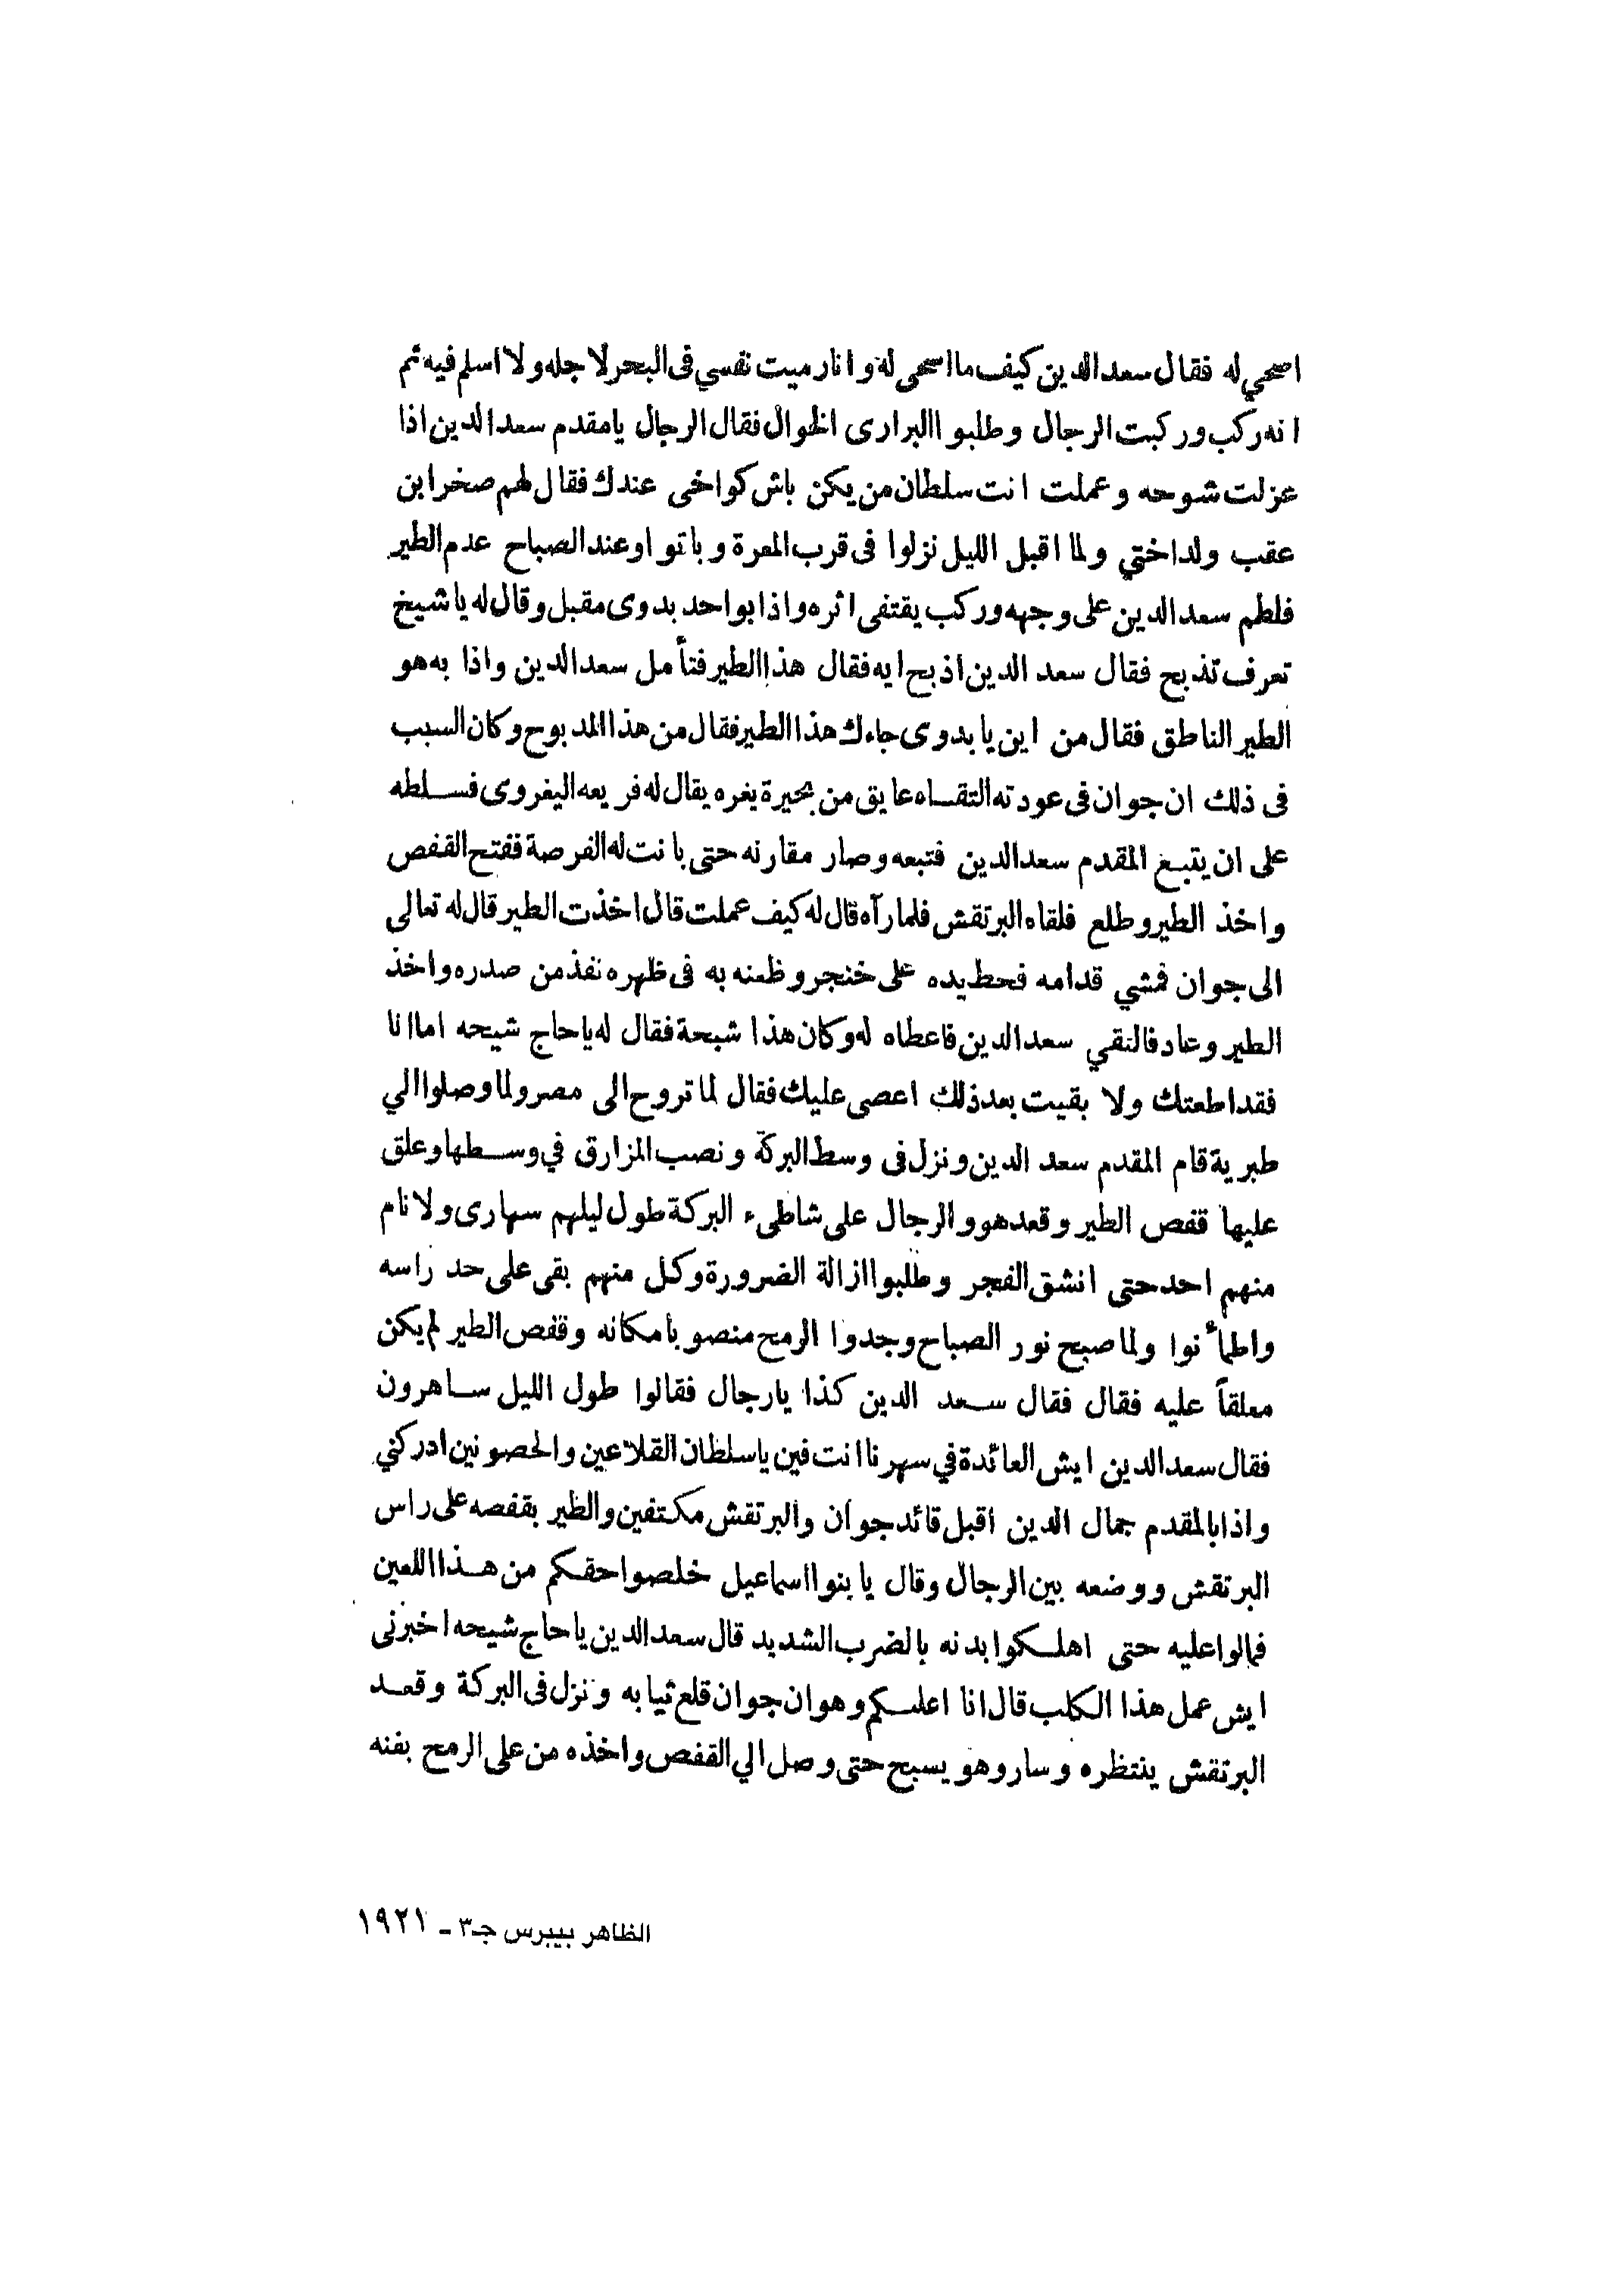 اصحي له فقال سعد الدين كيف ما اصحى له وانا رميت نفسي فى البحر لاجله ولا اسلم فيه ثم
انه ركب وركبت الرجال وطلبوا البرارى الخوال فقال الرجال يا مقدم سعد الدين اذا
عزلت شوحه وعملت انت سلطان من يكن باش كواخى عندك فقال لهم صخر ابن
عقب ولد اختي ولما اقبل الليل نزلوا فى قرب المعرة وباتوا وعند الصباح عدم الطير
فلطم سعد الدين على وجهه وركب يقتفى اثره واذا بواحد بدوى مقبل وقال له يا شيخ
تعرف تذبح فقال سعد الدين اذبح ايه فقال هذا الطير فتأمل سعد الدين واذا به هو
الطير الناطق فقال من اين يا بدوى جاءك هذا الطير فقال من هذا المدبوح وكان السبب
فى ذلك ان جوان فى عودته التقاه عايق من بحيرة يغره يقال له فريعه اليغروى فسلطه
على ان يتبع المقدم سعد الدين فتبعه وصار مقارنه حتى بانت له الفرصة ففتح القفص
واخذ الطير وطلع فلقاه البرتقش فلما رآه قال له كيف عملت قال اخذت الطير قال له تعالى
الى جوان فمشي قدامه فحط يده على خنجر وطعنه به فى ظهره نفذ من صدره واخذ
الطير وعاد فالتقي سعد الدين فاعطاه له وكان هذا شيحة فقال له يا حاج شيحه اما انا
فقد اطعتك ولا بقيت بعد ذلك اعصى عليك فقال لما تروح الى مصر ولما وصلوا الي
طبرية قام المقدم سعد الدين ونزل فى وسط البركة ونصب المزارق في وسطها وعلق
عليها قفص الطير وقعد هو والرجال على شاطىء البركة طول ليلهم سهارى ولا نام
منهم احد حتى انشق الفجر وطلبوا ازالة الضرورة وكل منهم بقى على حد راسه
واطمأنوا ولما صبح نور الصباح وجدوا الرمح منصوبا مكانه وقفص الطير لم يكن
معلقاً عليه فقال فقال سعد الدين كذا يا رجال فقالوا طول الليل ساهرون
فقال سعد الدين ايش العائدة في سهرنا انت فين يا سلطان القلاعين والحصونين ادركني
واذا بالمقدم جمال الدين اقبل قائد جوان والبرتقش مكتفين والطير بقفصه على راس
البرتقش ووضعه بين الرجال وقال يا بنوا اسماعيل خلصوا حقكم من هذا اللعين
فمالوا عليه حتى اهلكوا بدنه بالضرب الشديد قال سعد الدين يا حاج شيحه اخبرنى
ايش عمل هذا الكلب قال انا اعلمكم وهو ان جوان قلع ثيابه ونزل فى البركة وقعد
البرتقش ينتظره وسار وهو يسبح حتى وصل الي القفص واخذه من على الرمح بفنه
الظاهر بيبرس جـ٣ - ١٩٢١